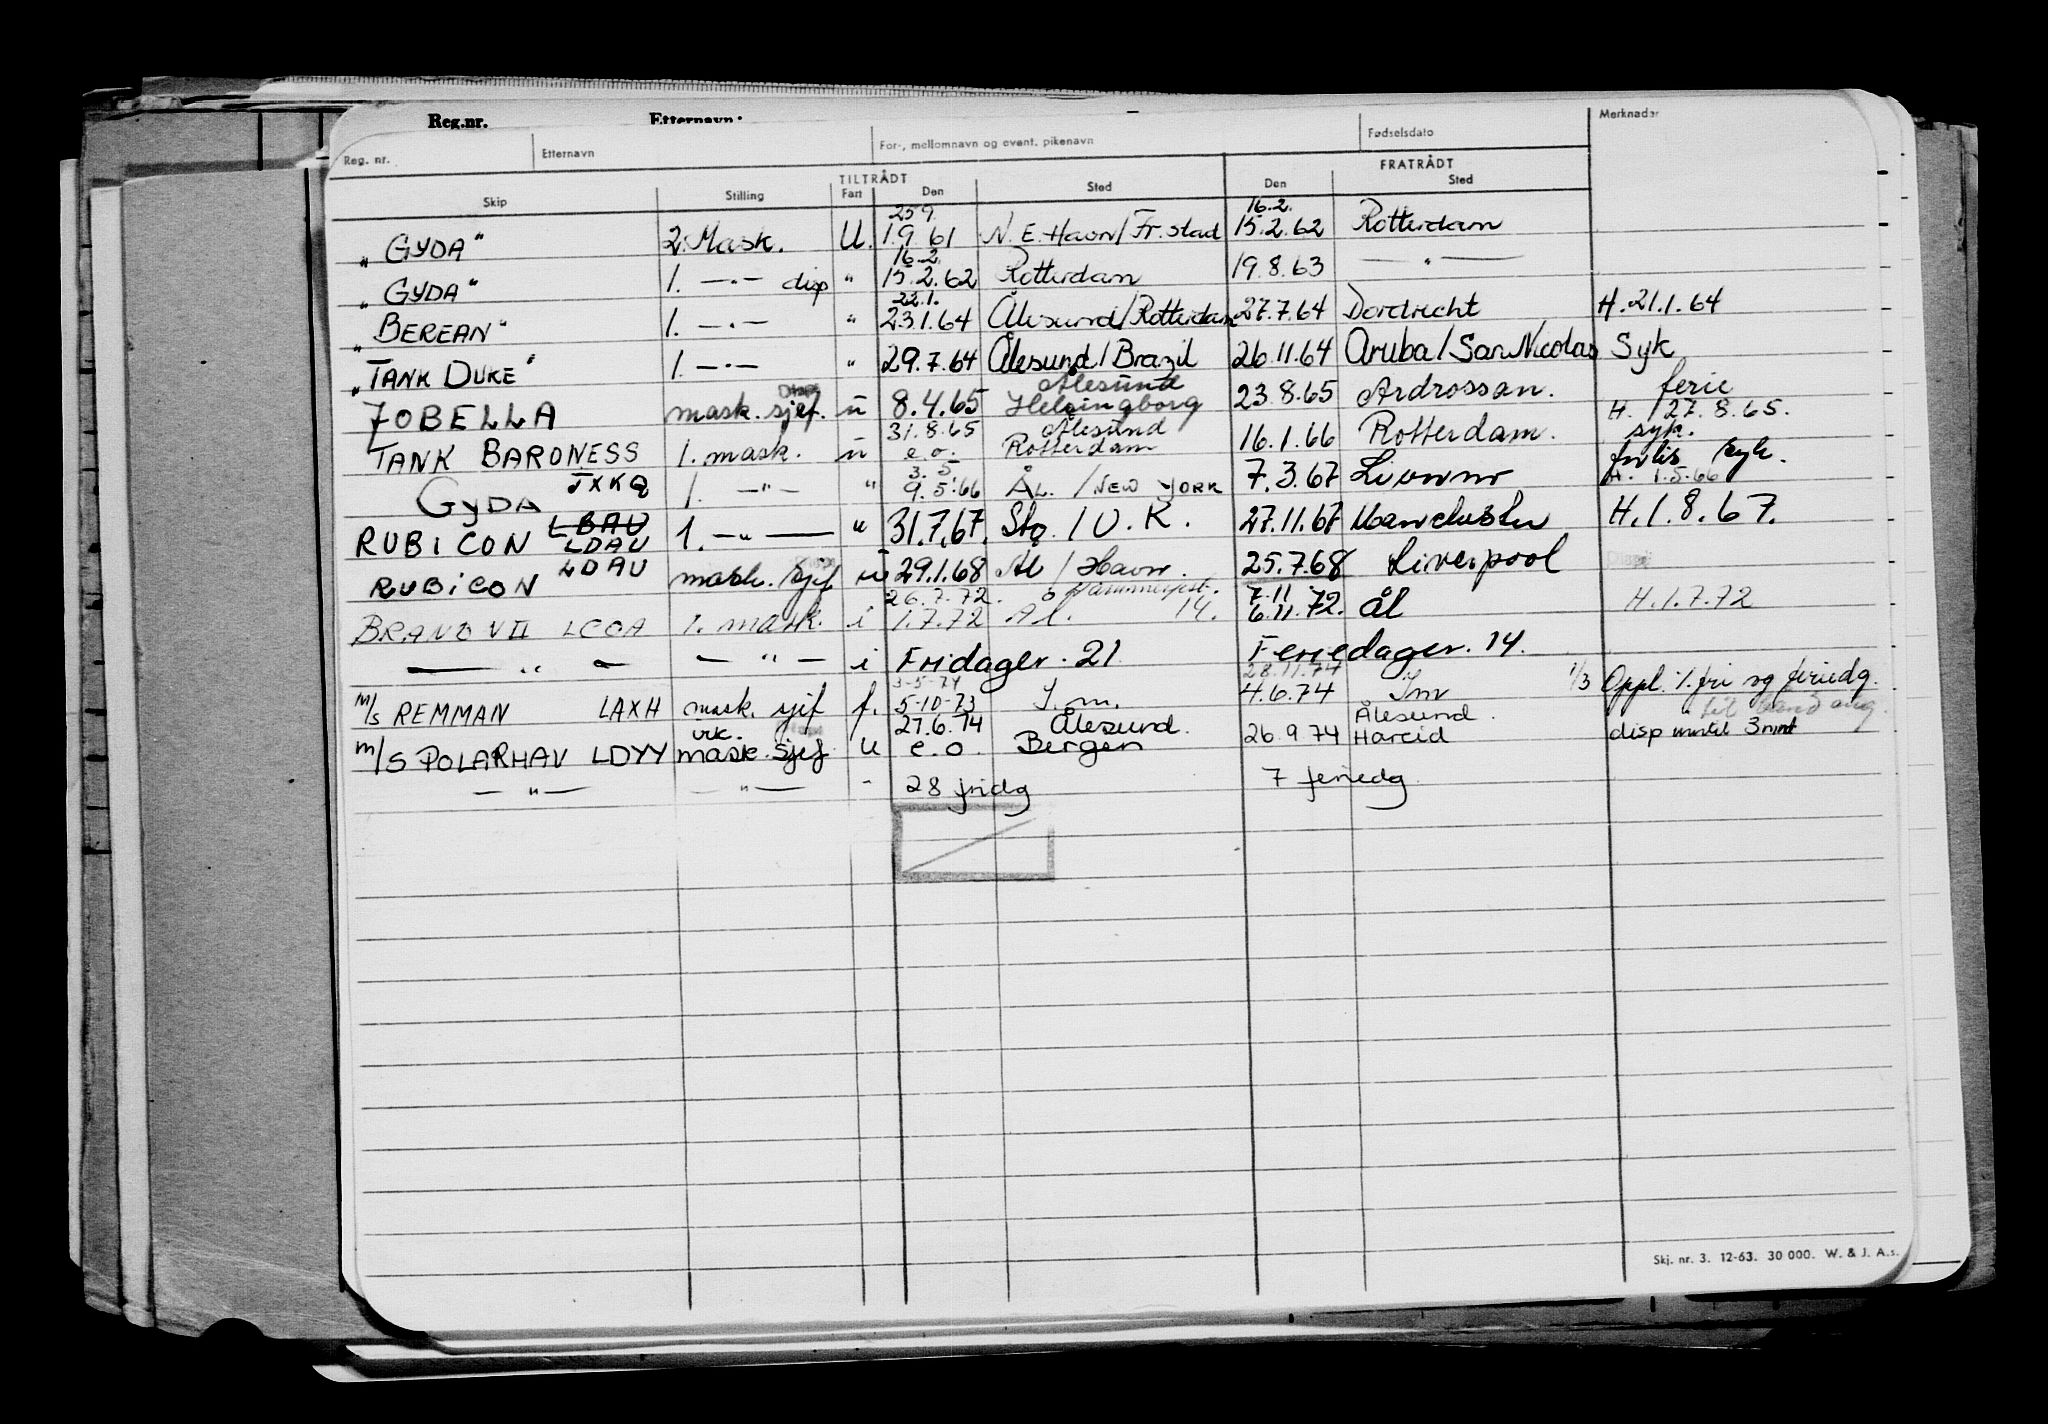 Reg.nr. Etternavn:
Reg. nr. Etternavn For-, mellomnavn og event. pikenavn Fødselsdato Merknader
TILTRÅDT FRATRÅDT
Skip Stilling Fart Den Sted Den Sted
25.9. 16.2.
"GYDA" 2. Mask. U. 1.9.61 N.E. Havn/Fr.stad 15.2.62 Rotterdam
16.2.
"GYDA" 1. —"— disp " 15.2.62 Rotterdam 19.8.63 —"—
22.1.
"BEREAN" 1. —"— " 23.1.64 Ålesund/Rotterdam 27.7.64 Dordrecht H. 21.1.64
"TANK DUKE" 1. —"— " 29.7.64 Ålesund/Brazil 26.11.64 Aruba/San Nicolas Syk
Disp Ålesund ferie
JOBELLA mask. sjef. u 8.4.65 Helsingborg 23.8.65 Ardrossan. H. 27.8.65.
31.8.65 Ålesund syk.
TANK BARONESS 1. mask. u e.o. Rotterdam 16.1.66 Rotterdam. forlis syk.
3. 5.
GYDA JXKQ 1. —"— " 9.5.66 ÅL. / NEW YORK 7.3.67 Livorno H. 1.5.66
LBAU
RUBICON LDAU 1. —"— " 31.7.67. Sto / U.K. 27.11.67 Manchester H.1.8.67.
RUBICON LDAU mask. sjef u 29.1.68 Ål / Havn. 25.7.68 Liverpool
26.7.72. Hammerfest. 7.11.72
BRAND VII LCOA 1. mask. i 1.7.72 Ål. 14. 6.11.72. ål H.1.7.72
—"— —"— i Fridager. 21 Feriedager. 14.
3-5-74 28.11.74
m/s REMMAN LAXH mask. sjef f. 5-10-73 I.m. 4.6.74 I m 1/3 Oppl. %. fri og feriedg.
vik. 27.6.74 Ålesund. Ålesund.
m/s POLARHAV LDYY mask. sjef u e.o. Bergen 26.9.74 Hareid disp inntil 3 mnt
—"— —"— - 28 fridg 7 feriedg
Skj. nr. 3. 12-63. 30 000. W. & J. A.s.